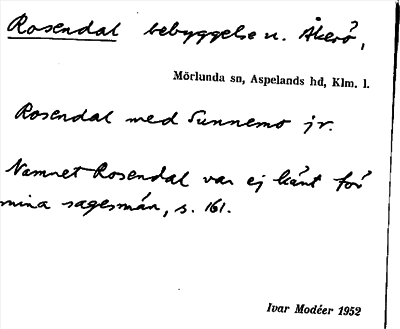 Rosendal bebyggelse u. Åkerö,
Mörlunda sn, Aspelands hd, Klm. l.
Rosendal med Sunnemo jr.
Namnet Rosendal var ej känt för
mina sagesmän, s. 161.
Ivar Modéer 1952